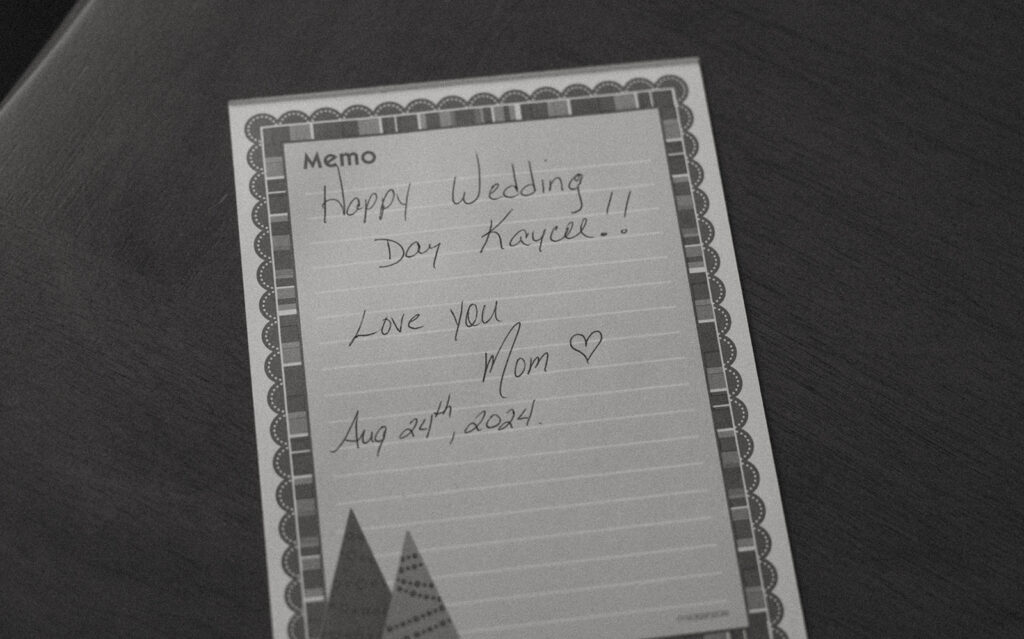 Memo
Happy Wedding
Day Kaycee.!!
Love you
Mom ♡
Aug 24th, 2024.